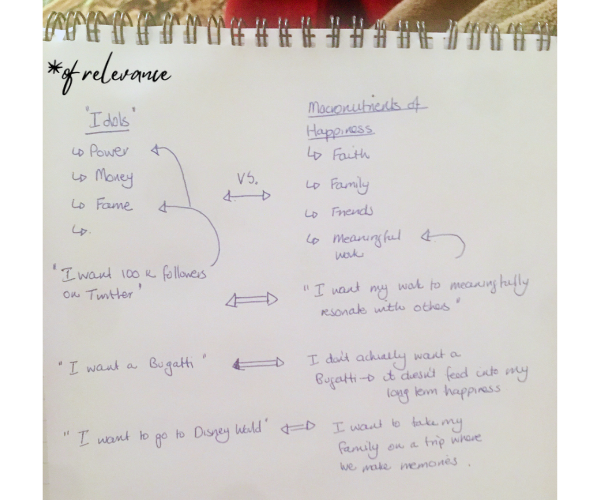 *of relevance
"Idols"
↳ Power
↳ Money
↳ Fame
↳.
VS.
Macronutrients of
Happiness
↳ Faith
↳ Family
↳ Friends
↳ Meaningful
work
"I want 100 k followers
on Twitter"
"I want my work to meaningfully
resonate with others"
"I want a Bugatti"
I don't actually want a
Bugatti → it doesn't feed into my
long term happiness
"I want to go to Disney World"
I want to take my
family on a trip where
we make memories.